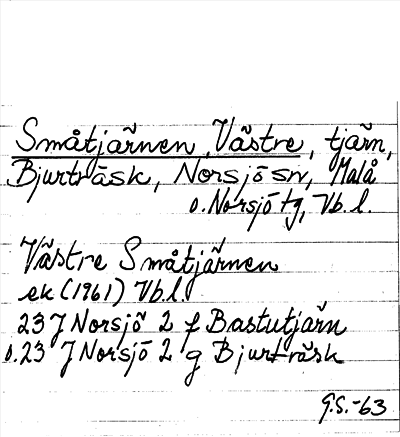 Småtjärnen, Västre, tjärn,
Bjurträsk, Norsjö sn, Malå
o. Norsjö tg, Vb. l.
Västre Småtjärnen
ek (1961) Vb.l.
23 J Norsjö 2 f Bastutjärn
o. 23 J Norsjö 2 g Bjurträsk
G.S.-63